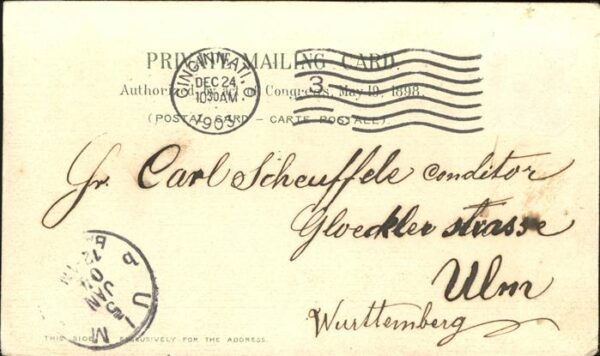 PRIVATE MAILING CARD.
Authorized by Act of Congress, May 19, 1898.
(POSTAL CARD – CARTE POSTALE).
CINCINNATI, O
DEC 24
10 30 AM
1903
3
Hr. Carl Scheuffele Conditor
Gloeckler strasse
Ulm
Wurttemberg
ULM
JAN
THIS SIDE EXCLUSIVELY FOR THE ADDRESS.